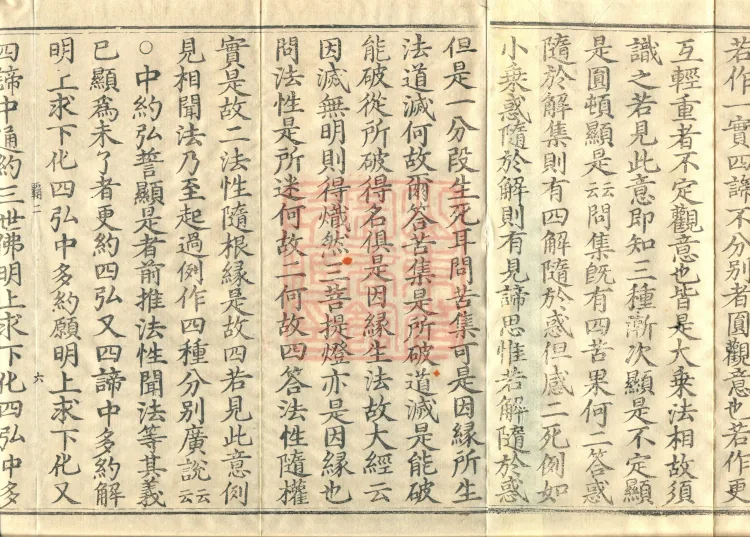 若作一實四諦不分別者圓觀意也若作更
互輕重者不定觀意也皆是大乗法相故須
識之若見此意即知三種漸次顯是不定顯
是圓頓顯是云云問集旣有四苦果何二答惑
隨於解集則有四解隨於惑但感二死例如
小乗惑隨於解則有見諦思惟若解隨於惑
但是一分段生死耳問苦集可是因緣所生
法道滅何故爾答苦集是所破道滅是能破
能破從所破得名俱是因緣生法故大經云
因滅無明則得熾然三菩提燈亦是因緣也
問法性是所迷何故二何故四答法性隨權
實是故二法性隨根緣是故四若見此意例
見相聞法乃至起過例作四種分別廣說云云
○中約弘誓顯是者前推法性聞法等其義
已顯爲未了者更約四弘又四諦中多約解
明上求下化四弘中多約願明上求下化又
二
六
四諦中通約三世佛明上求下化四弘中多